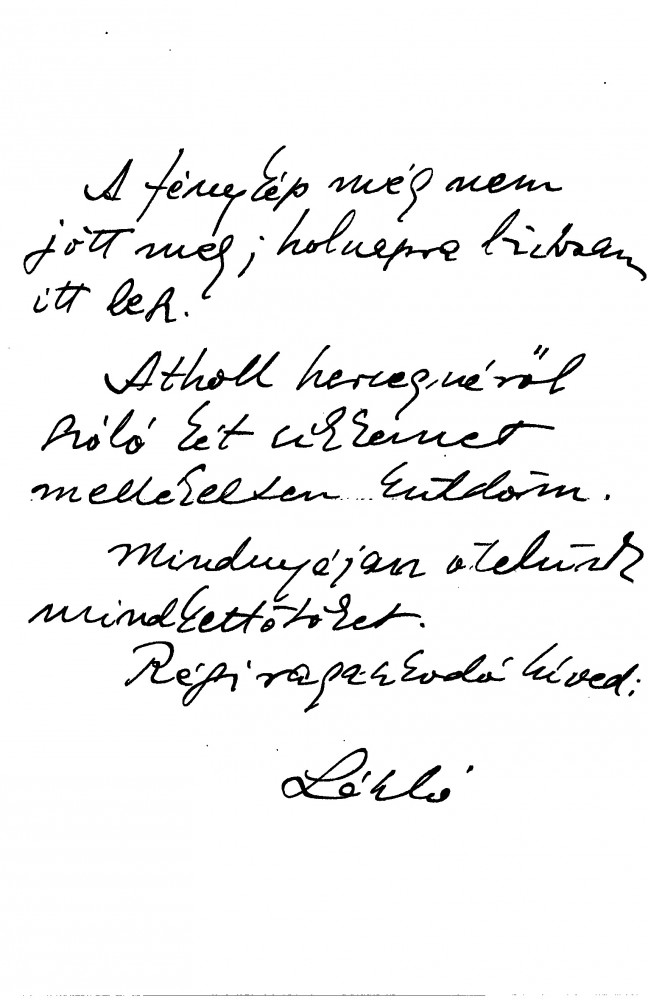 A fénykép még nem
jött meg; holnapra biztosan
itt lesz.
Atholl hercegnéről
szóló két cikkemet
mellékelten küldöm.
Mindnyájan ölelünk
mindkettőtöket.
Régi ragaszkodó híved:
László